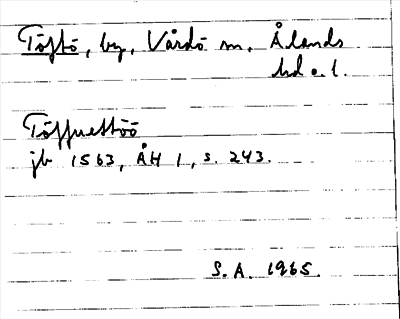 Töftö, by, Vårdö sn, Ålands
hd o. l.
Töffuettöö
jb 1563, ÅH 1, s. 243.
S. A. 1965.